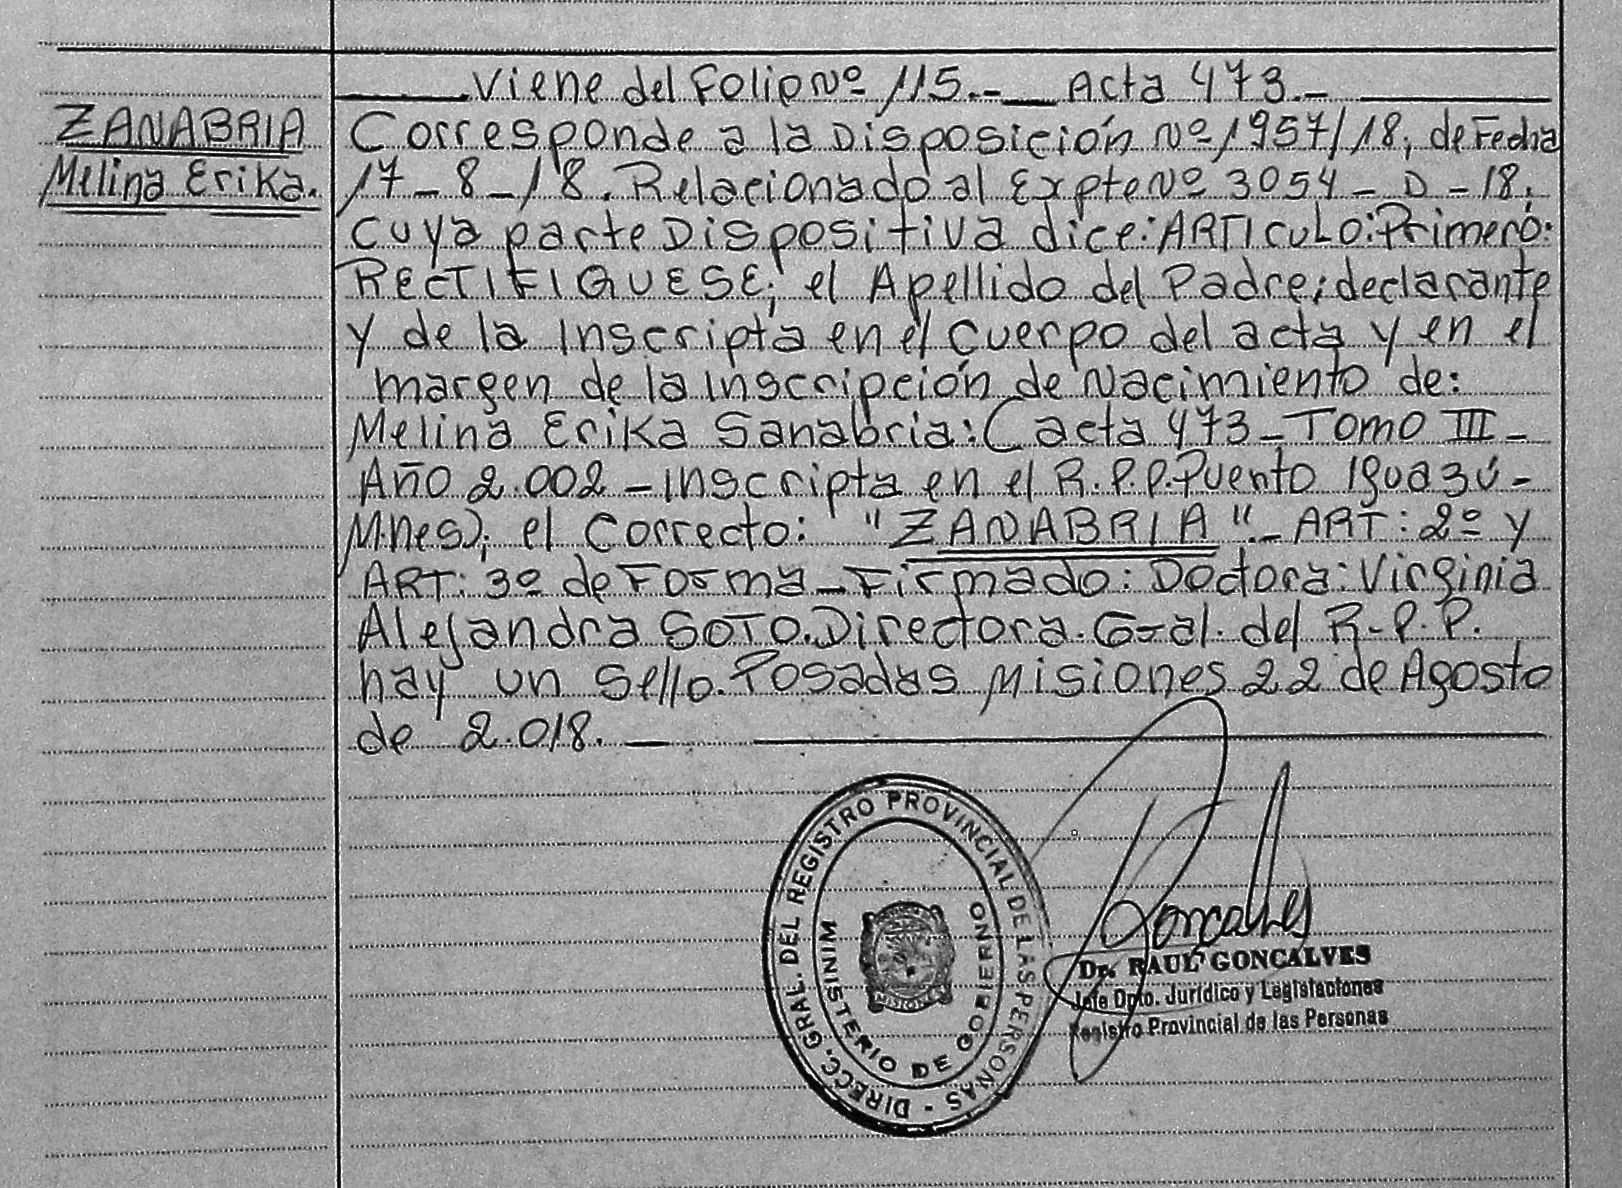 Viene del Folio Nº 115.- Acta 473.-
ZANABRIA
Melina Erika.
Corresponde a la Disposición Nº 1957/18, de Fecha
17-8-18. Relacionado al Expte Nº 3054-D-18,
cuya parte Dispositiva dice: ARTICULO: Primero:
RECTIFIQUESE; el Apellido del Padre; declarante
y de la Inscripta en el cuerpo del acta y en el
margen de la Inscripción de Nacimiento de:
Melina Erika Sanabria: (acta 473-Tomo III-
Año 2.002-Inscripta en el R.P.P. Puerto Iguazú-
Mnes), el Correcto: "ZANABRIA".- ART: 2º y
ART: 3º de Forma-Firmado: Doctora: Virginia
Alejandra SOTO. Directora. Gral. del R.P.P.
hay un Sello. Posadas Misiones 22 de Agosto
de 2.018.
DIRECC. GRAL. DEL REGISTRO PROVINCIAL DE LAS PERSONAS -
MINISTERIO DE GOBIERNO
MISIONES
Goncalves
Dr. RAUL GONCALVES
Jefe Dpto. Jurídico y Legislaciones
Registro Provincial de las Personas